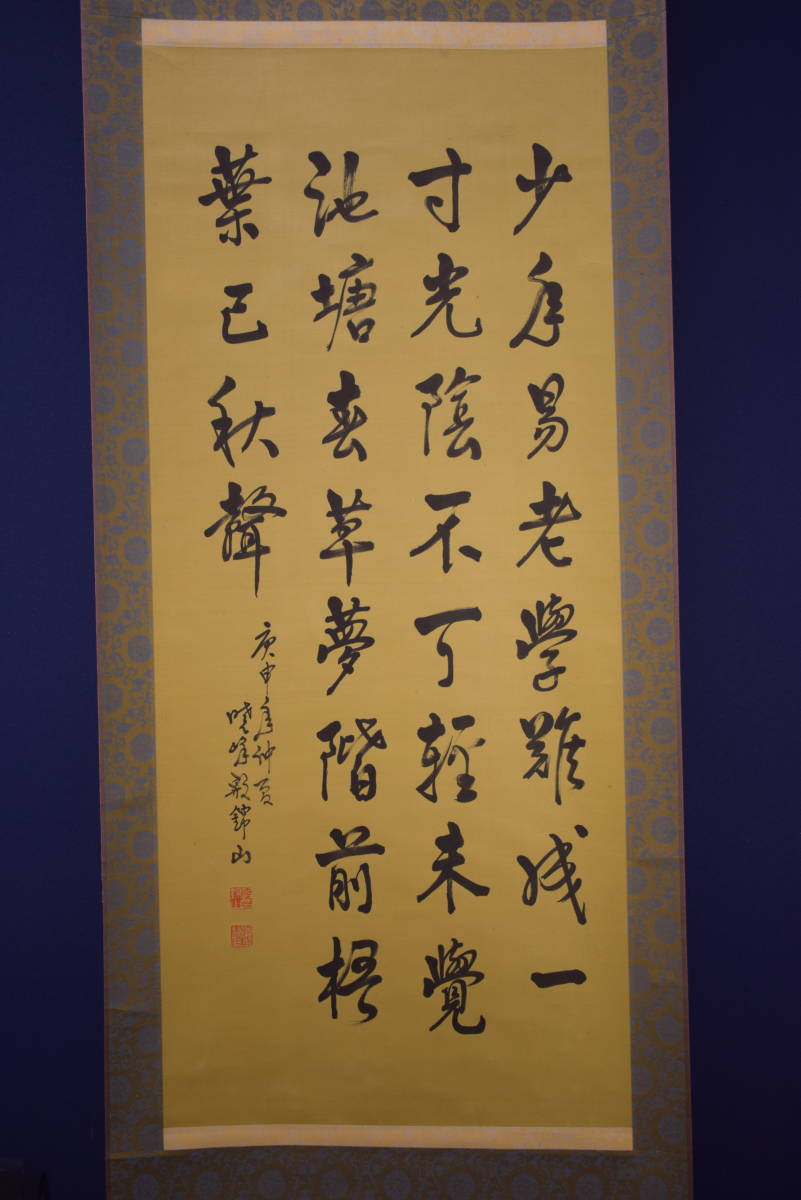 少年易老學難成一
寸光陰不可輕未覺
池塘春草夢階前梧
葉已秋聲
庚申年仲夏
曉峰殷錦山